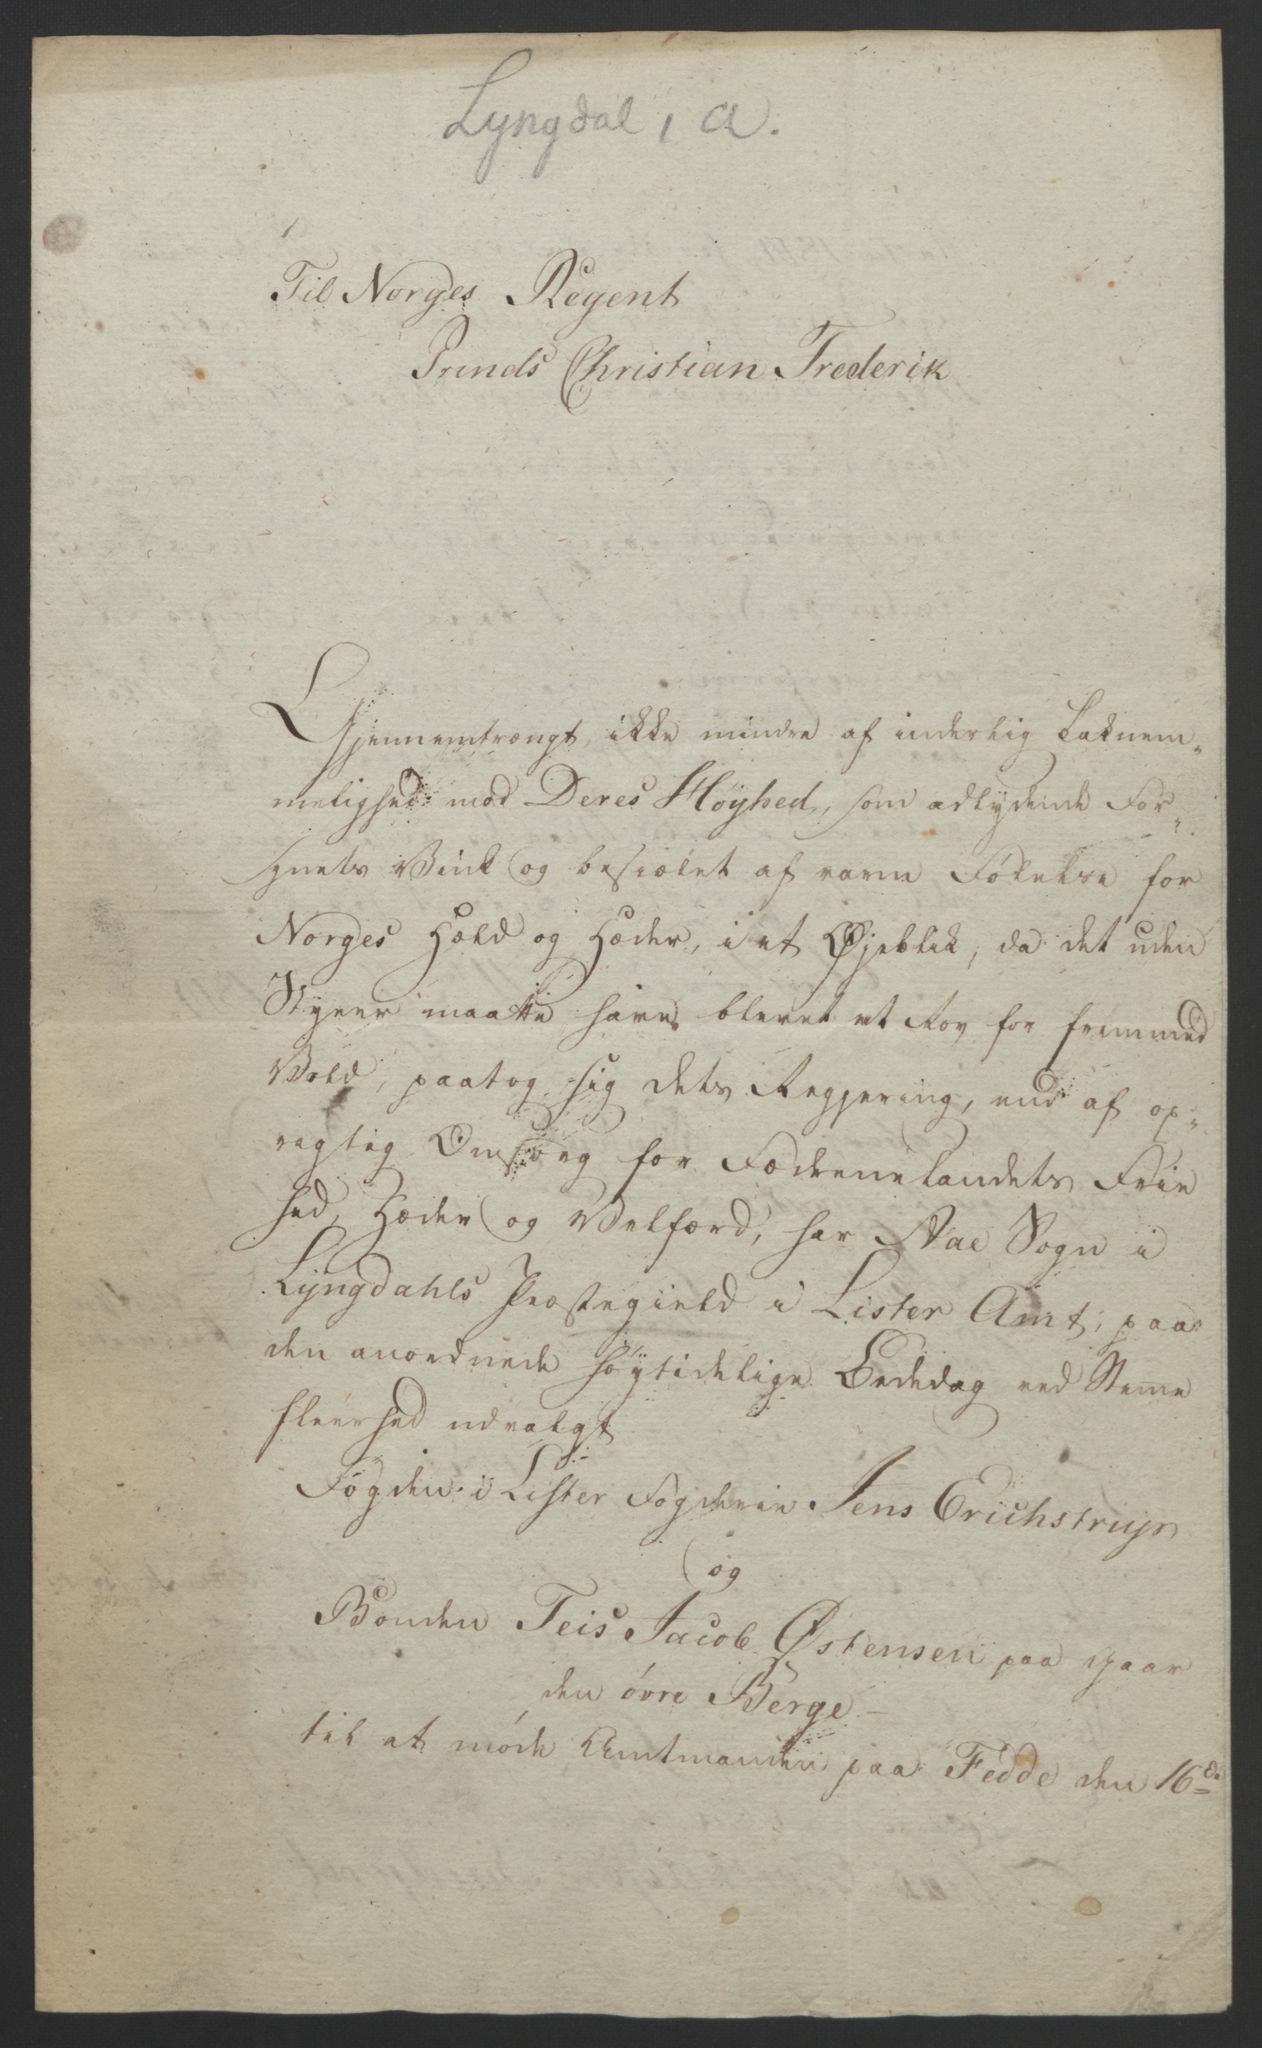 Lyngdal, a.
Til Norges Regent
Prinds Christian Frederik
Gjennemtrængt ikke mindre af inderlig Taknem-
melighed mod Deres Høyhed, som adlydende For-
synets Vink og besiælet af varm Følelse for
Norges Held og Hæder, i et Øjeblik, da det uden
Styrer maatte have blevet et Rov for fremmed
Vold, paatog sig dets Regjering, end af op-
rigtig Omsorg for Fædrenelandets Frie
hed, Hæder og Velfærd, har Aae Sogn i
Lyngdahls Præstegield i Lister Amt, paa
den anordnede høytidelige Bededag ved Steme
fleerhed udvalgt
Fogden i Lister Fogderie Jens Erichstrup
og
Bonden Teis Jacob Østensen paa gaar
den øvre Berge
til at møde Amtmanden paa Fedde den 16de